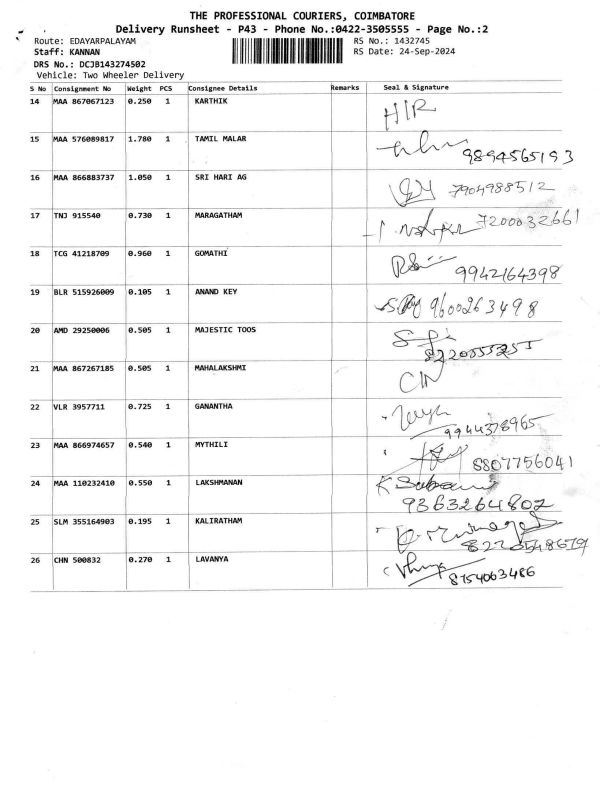 THE PROFESSIONAL COURIERS, COIMBATORE
Delivery Runsheet - P43 - Phone No.:0422-3505555 - Page No.:2
Route: EDAYARPALAYAM RS No.: 1432745
Staff: KANNAN RS Date: 24-Sep-2024
DRS No.: DCJB143274502
Vehicle: Two Wheeler Delivery
S No Consignment No Weight PCS Consignee Details Remarks Seal & Signature
14 MAA 867067123 0.250 1 KARTHIK HIR
15 MAA 576089817 1.780 1 TAMIL MALAR 9894565193
16 MAA 866883737 1.050 1 SRI HARI AG 7904988512
17 TNJ 915540 0.730 1 MARAGATHAM 7200032661
18 TCG 41218709 0.960 1 GOMATHI 9942164398
19 BLR 515926009 0.105 1 ANAND KEY 9600263498
20 AMD 29250006 0.505 1 MAJESTIC TOOS
21 MAA 867267185 0.505 1 MAHALAKSHMI
22 VLR 3957711 0.725 1 GANANTHA 9944378965
23 MAA 866974657 0.540 1 MYTHILI 8807756041
24 MAA 110232410 0.550 1 LAKSHMANAN
9363264802
25 SLM 355164903 0.195 1 KALIRATHAM
26 CHN 500832 0.270 1 LAVANYA 8754063486